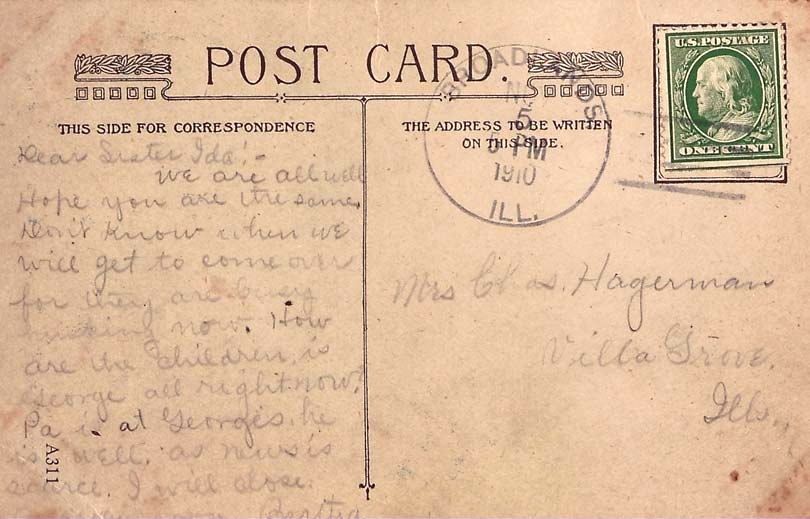 POST CARD.
THIS SIDE FOR CORRESPONDENCE
THE ADDRESS TO BE WRITTEN
ON THIS SIDE.
BROADLANDS
5 PM
1910
ILL.
U.S. POSTAGE
ONE CENT
Dear Sister Ida:-
we are all well
Hope you are the same.
Don't know when we
will get to come over
for they are busy
now. How
are the children, is
George all right now?
Pa is at Georges, he
is well, as news is
scarce. I will close.
Bertha
Mrs Chas. Hagerman
Villa Grove,
Ills.,
A311